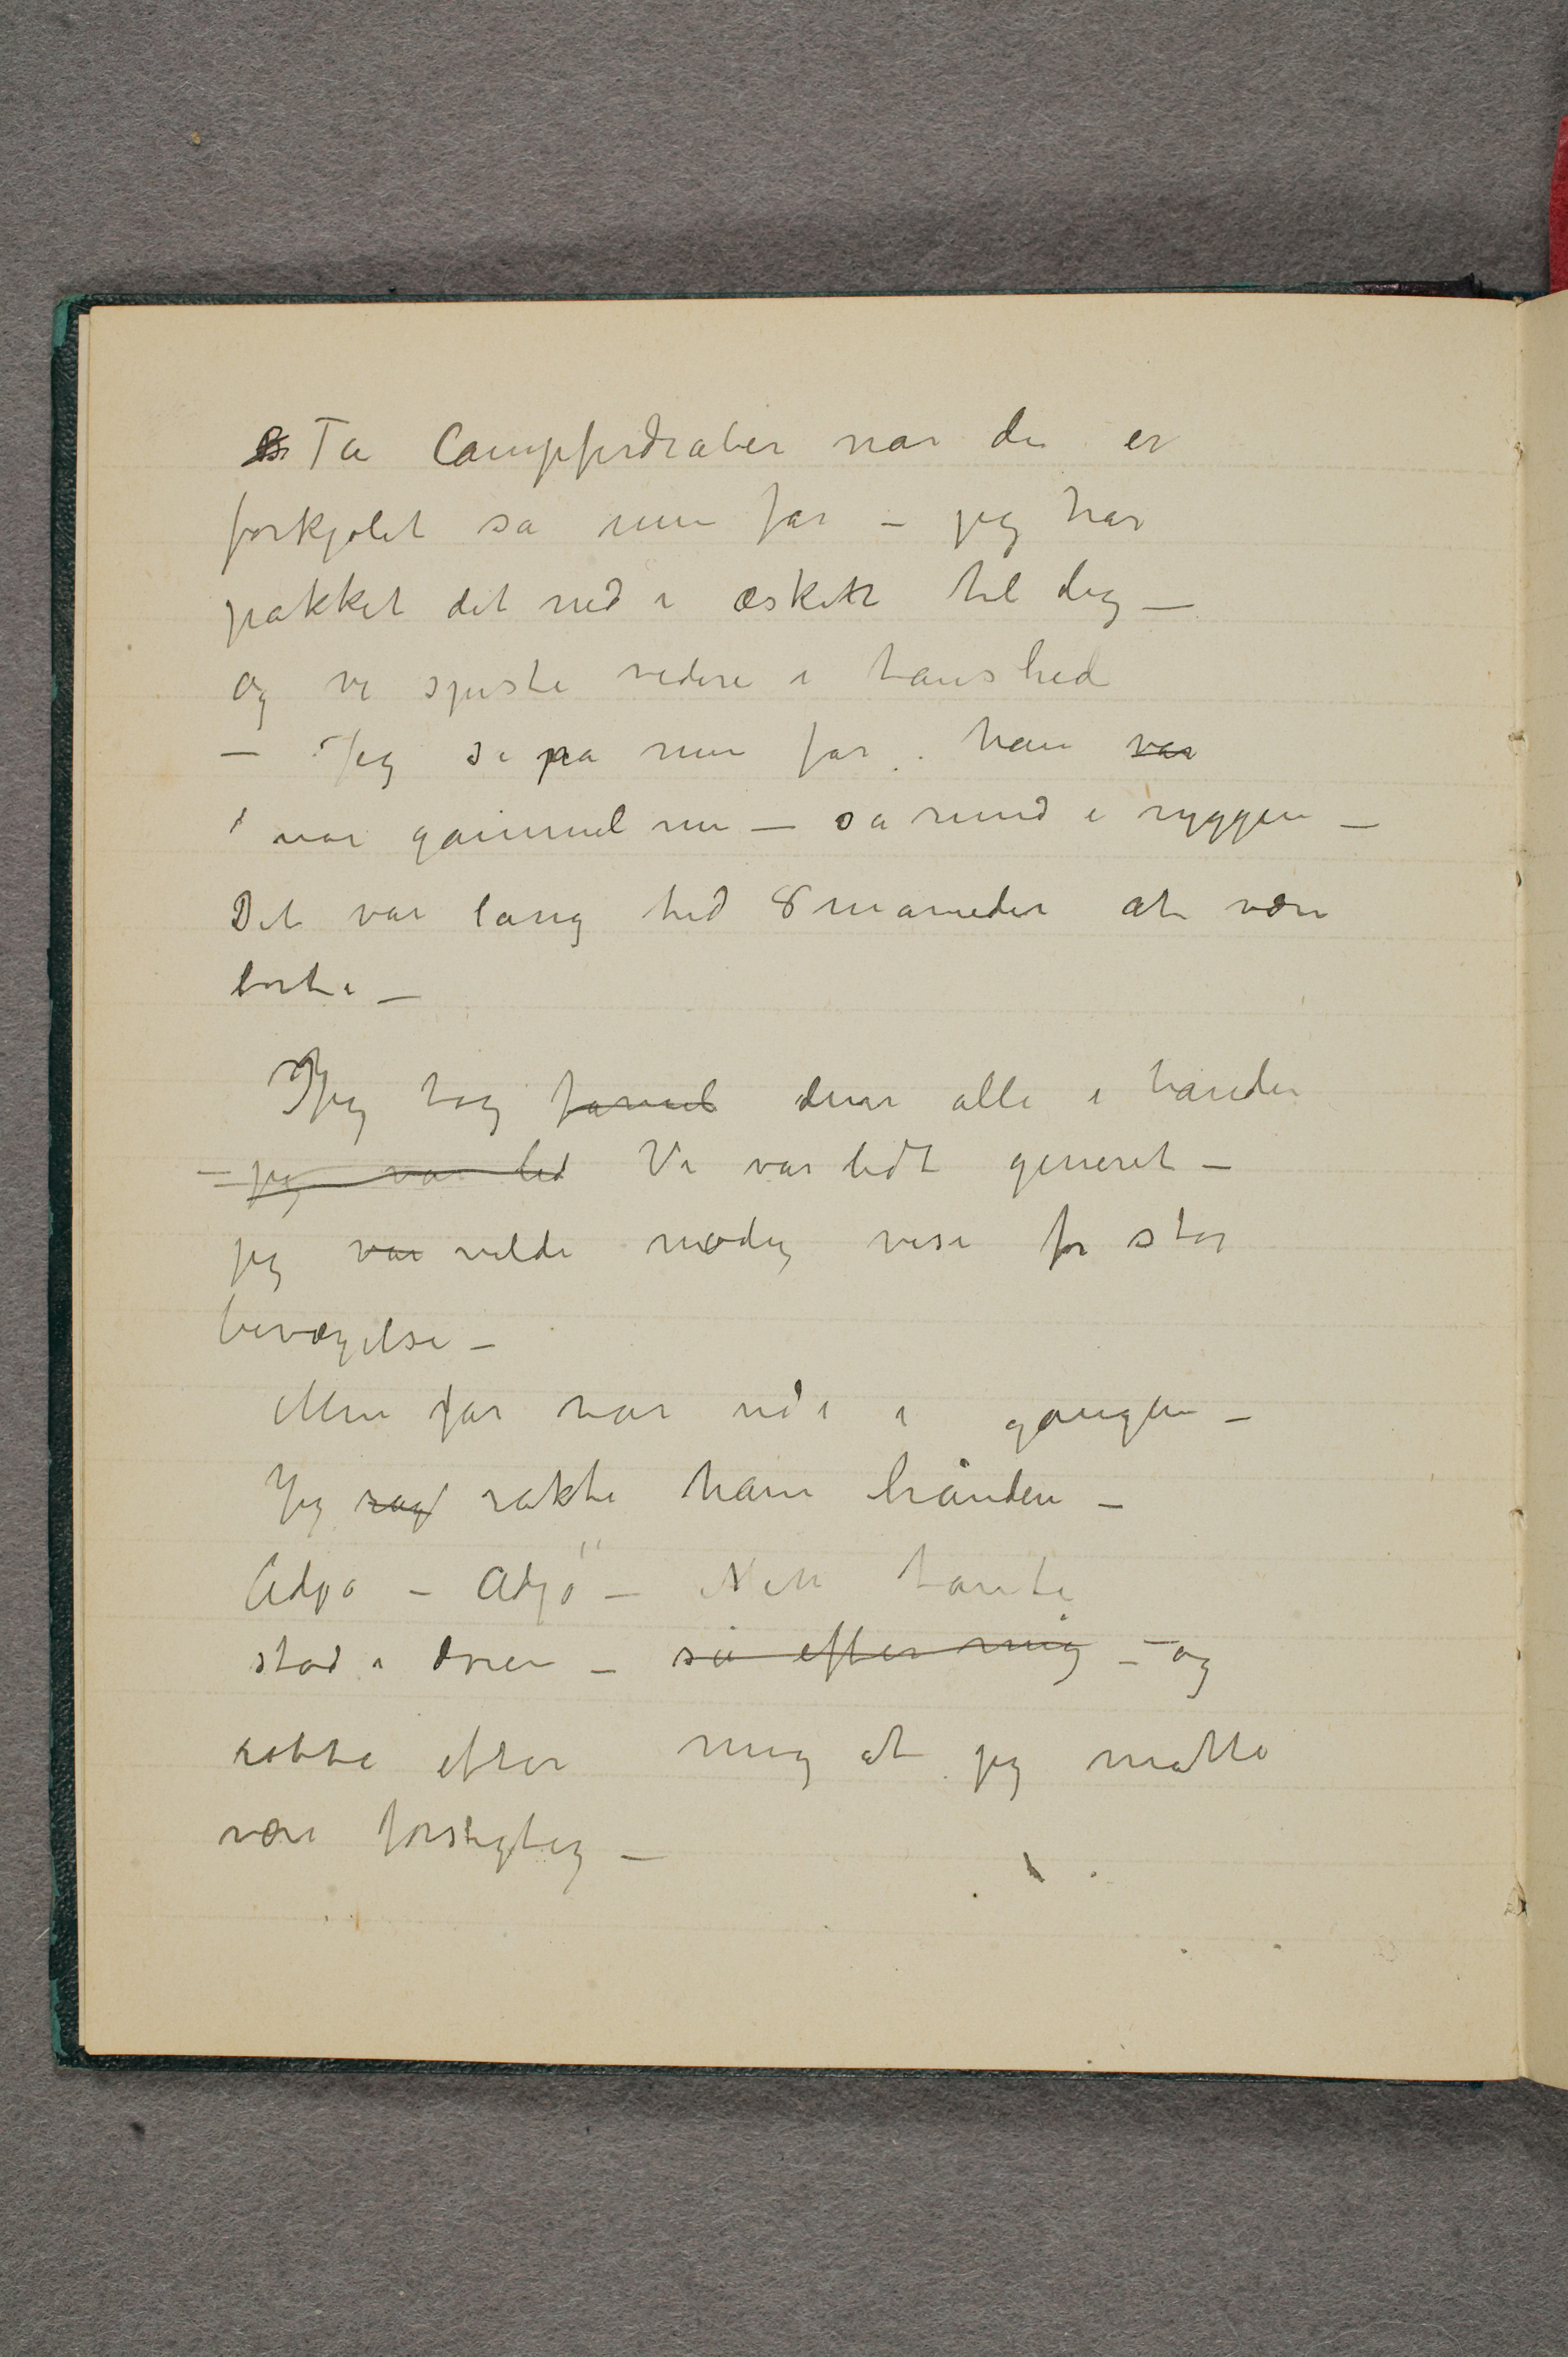 Ta Campferdraber nar du er
forkjølet sa min far – jeg har
pakket det ned i æsken til dig –
og vi spiste videre i taushed
– Jeg så pa min far. han var
var gammel nu – sa rund i ryggen –
Det var lang tid 8 maneder at være
borte –
Jeg tog farvel dem alle i hånden
– jeg var lid Vi var lidt generet –
jeg var vilde nødig vise for stor
bevægelse –
Min far var ude i gangen –
Jeg rag rakte ham hånden –
Adjø – Adjø – Men tante
stod i døren – så efter mig – og
råbte efter mig at jeg måtte
være forsigtig –